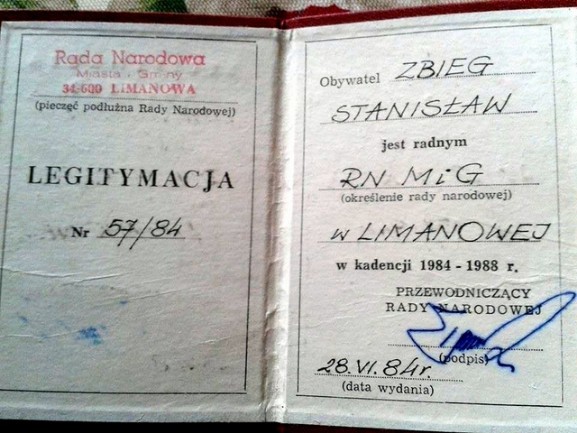 Rada Narodowa
Miasta i Gminy
34-600 LIMANOWA
(pieczęć podłużna Rady Narodowej)
LEGITYMACJA
Nr 57/84
Obywatel ZBIEG
STANISŁAW
jest radnym
RN MiG
(określenie rady narodowej)
w LIMANOWEJ
w kadencji 1984 - 1988 r.
PRZEWODNICZĄCY
RADY NARODOWEJ
(podpis)
28.VI.84r.
(data wydania)